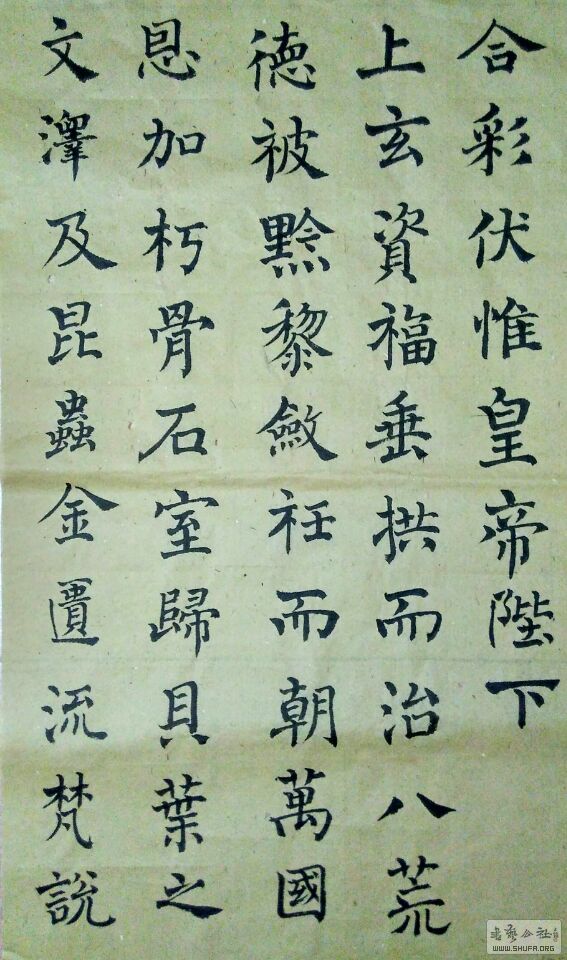 合彩伏惟皇帝陛下
上玄資福垂拱而治八荒
德被黔黎斂衽而朝萬國
恩加朽骨石室歸貝葉之
文澤及昆蟲金匱流梵說
书艺公社
WWW.SHUFA.ORG